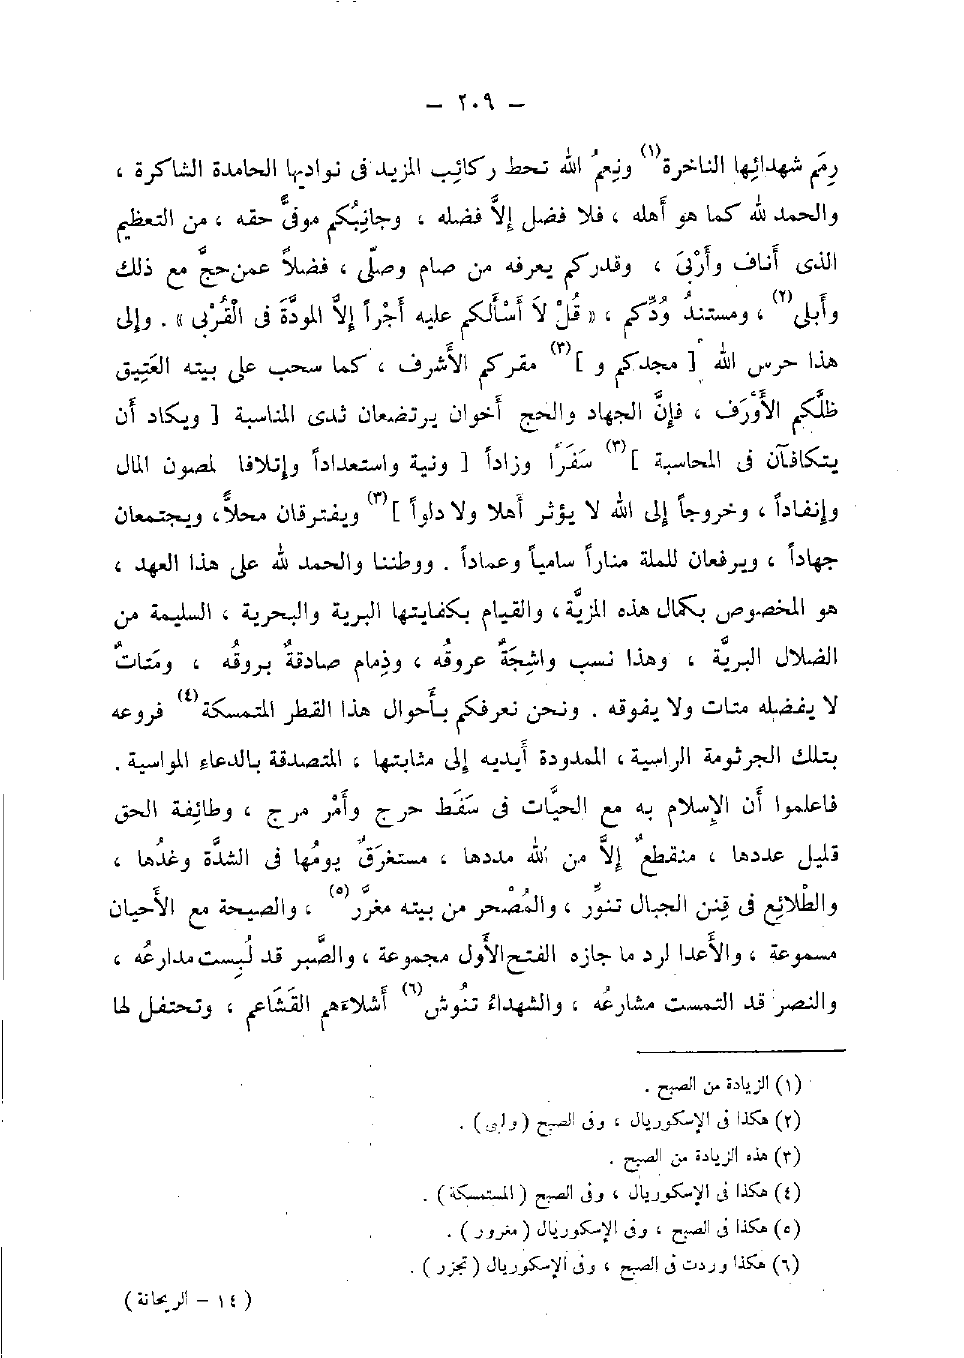 — ٢٠٩ —
رِمَم شهدائِها الناخرة(١) ونِعمُ الله تحط ركائب المزيد فى نواديها الحامدة الشاكرة ،
والحمد لله كما هو أهله ، فلا فضل إلاَّ فضله ، وجانِبُكم موفىًّ حقه ، من التعظيم
الذى أناف وأَرْبىَ ، وقدركم يعرفه من صام وصلّى ، فضلاً عمن حجَّ مع ذلك
وأبلى(٢) ، ومستندُ وُدِّكم ، « قُلْ لاَ أسْأَلكم عليه أجْراً إلاَّ المودَّةَ فى الْقُرْبى » . وإلى
هذا حرس الله [ مجدكم و ](٣) مقركم الأشرف ، كما سحب على بيته العَتِيق
ظلَّكم الأَوْرَف ، فإنَّ الجهاد والحج أخوان يرتضعان ثدى المناسبة [ ويكاد أن
يتكافآن فى المحاسبة ](٣) سَفَرًا وزاداً [ ونية واستعداداً وإتلافا لمصون المال
وإنفاداً ، وخروجاً إلى الله لا يؤثر أهلا ولا داوأ ](٣) ويفترقان محلاًّ، ويجتمعان
جهاداً ، ويرفعان للملة مناراً سامياً وعماداً . ووطننا والحمد لله على هذا العهد ،
هو المخصوص بكمال هذه المزيَّة، والقيام بكفايتها البرية والبحرية ، السليمة من
الضلال البريَّة ، وهذا نسب واشِجَةٌ عروقُه ، وذِمام صادقةٌ بروقُه ، ومَتاتٌ
لا يفضله متات ولا يفوقه . ونحن نعرفكم بأحوال هذا القطر المتمسكة(٤) فروعه
بتلك الجرثومة الراسية، الممدودة أيديه إلى مثابتها ، المتصدقة بالدعاءِ المواسية .
فاعلموا أن الإسلام به مع الحيَّات فى سَفَط حرج وأمْر مرج ، وطائِفة الحق
قليل عددها ، منقطعٌ إلاَّ من الله مددها ، مستغرَقٌ يومُها فى الشدَّة وغدُها ،
والطْلائِع فى قِنن الجبال تنوِّر ، والمُصْحر من بيته مغررَّ(٥) ، والصيحة مع الأحيان
مسموعة ، والأعدا لرد ما جازه الفتح الأَول مجموعة ، والصَّبر قد لُبِست مدارعُه ،
والنصر قد التمست مشارعُه ، والشهداءُ تنُوش(٦) أشلاءَهم القَشَاعم ، وتحتفل لها
(١) الزيادة من الصبح .
(٢) هكذا فى الإسكوريال ، وفى الصبح ( ولبى ) .
(٣) هذه الزيادة من الصبح .
(٤) هكذا فى الإسكوريال ، وفى الصبح ( المستمسكة ) .
(٥) هكذا فى الصبح ، وفى الإسكوريال ( مغرور ) .
(٦) هكذا وردت فى الصبح ، وفى الإسكوريال ( تجزر ) .
( ١٤ – الريحانة )